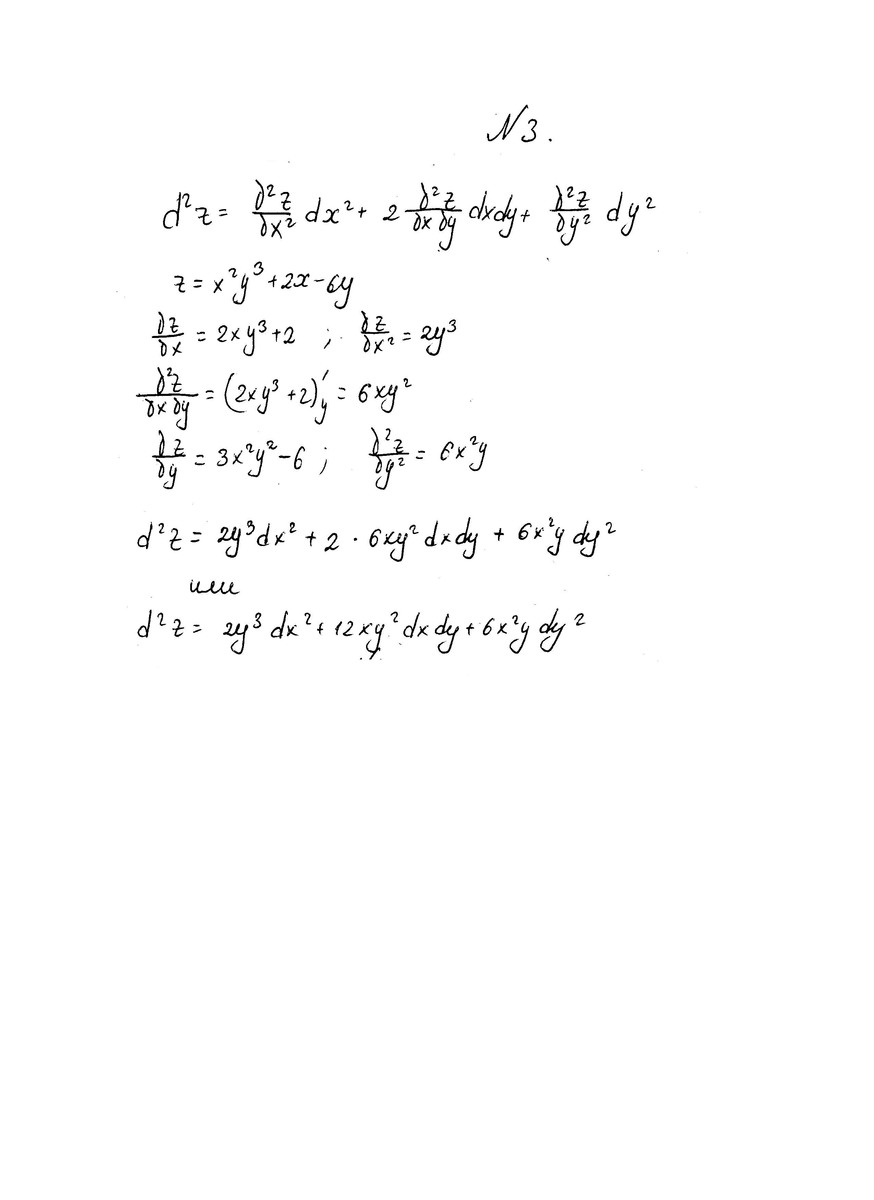 N3.
d²z = ∂²z/∂x² dx² + 2 ∂²z/∂x∂y dxdy + ∂²z/∂y² dy²
z = x²y³ + 2x - 6y
∂z/∂x = 2xy³ + 2 ; ∂z/∂x² = 2y³
∂²z/∂x∂y = (2xy³ + 2)'y = 6xy²
∂z/∂y = 3x²y² - 6 ; ∂²z/∂y² = 6x²y
d²z = 2y³dx² + 2 · 6xy² dxdy + 6x²y dy²
или
d²z = 2y³ dx² + 12xy² dx dy + 6x²y dy²